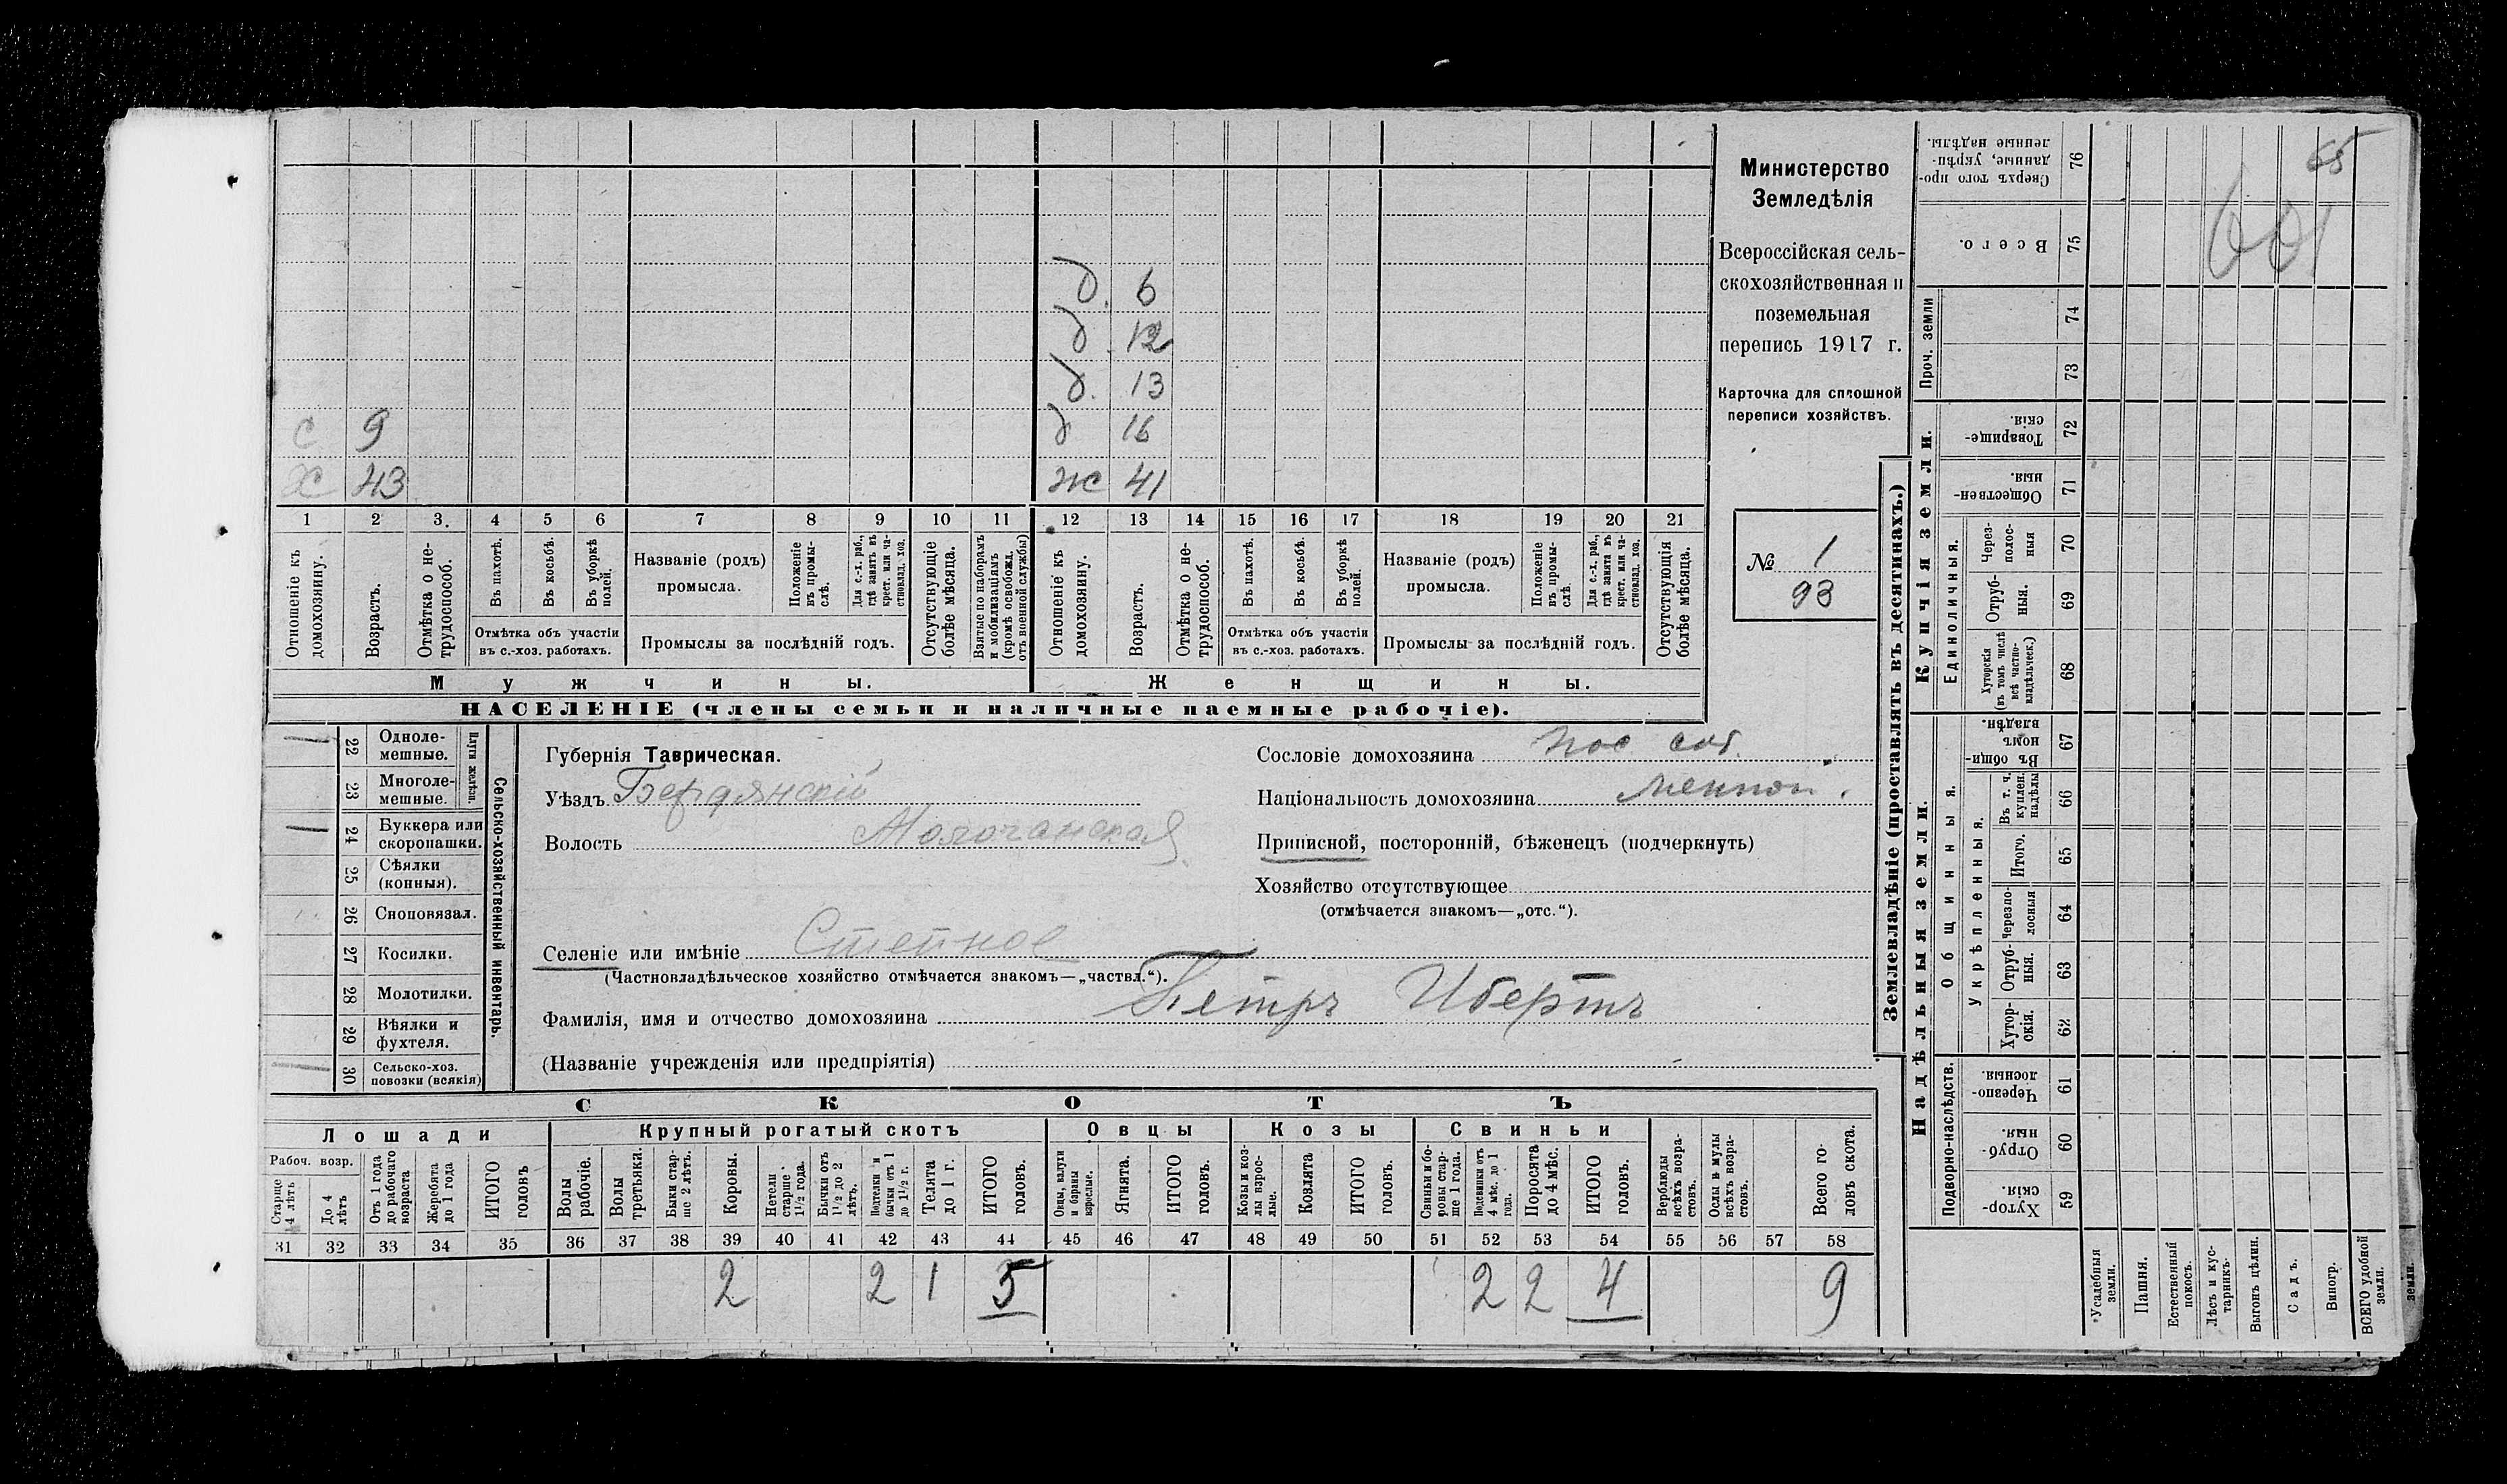 65
601
Министерство
Земледѣлія
Всероссійская сель-
скохозяйственная и
поземельная
перепись 1917 г.
Карточка для сплошной
переписи хозяйствъ.
№ 1
93
д. 6
д. 12
д. 13
с 9 д 16
х 43 ж 41
1 2 3. 4 5 6 7 8 9 10 11 12 13 14 15 16 17 18 19 20 21
Отношеніе къ домохозяину.
Возрастъ.
Отмѣтка о не-трудоспособ.
Въ пахотѣ.
Въ косьбѣ.
Въ уборкѣ полей.
Отмѣтка объ участіи
въ с.-хоз. работахъ.
Названіе (родъ)
промысла.
Положеніе въ промы-слѣ.
Для с.-х. раб., гдѣ занятъ въ крест. или ча-стновлад. хоз.
Промыслы за послѣдній годъ.
Отсутствующіе болѣе мѣсяца.
Взятые по наборамъ и мобилизаціямъ (кромѣ освобожд. отъ военной службы)
Отношеніе къ домохозяину.
Возрастъ.
Отмѣтка о не-трудоспособ.
Въ пахотѣ.
Въ косьбѣ.
Въ уборкѣ полей.
Отмѣтка объ участіи
въ с.-хоз. работахъ.
Названіе (родъ)
промысла.
Положеніе въ промы-слѣ.
Для с.-х. раб., гдѣ занята въ крест. или ча-стновлад. хоз.
Промыслы за послѣдній годъ.
Отсутствующія болѣе мѣсяца.
Мужчины. Женщины.
НАСЕЛЕНІЕ (члены семьи и наличные наемные рабочіе).
Сельско-хозяйственный инвентарь.
Плуги желѣзн.
22 Одноле-мешные.
23 Многоле-мешные.
24 Буккера или скоропашки.
25 Сѣялки (конныя).
26 Сноповязал.
27 Косилки.
28 Молотилки.
29 Вѣялки и фухтеля.
30 Сельско-хоз. повозки (всякія)
Губернія Таврическая.
Уѣздъ Бердянскій
Волость Молочанская
Селеніе или имѣніе Степное
(Частновладѣльческое хозяйство отмѣчается знакомъ—„частвл.“).
Сословіе домохозяина пос соб.
Національность домохозяина меннон.
Приписной, посторонній, бѣженецъ (подчеркнуть)
Хозяйство отсутствующее
(отмѣчается знакомъ—„отс.“).
Фамилія, имя и отчество домохозяина Петръ Ибертъ
(Названіе учрежденія или предпріятія)
СКОТЪ
Лошади Крупный рогатый скотъ Овцы Козы Свиньи
Рабоч. возр.
Старше 4 лѣтъ
До 4 лѣтъ
Отъ 1 года до рабочаго возраста
Жеребята до 1 года
ИТОГО головъ
Волы рабочіе.
Волы третьяка.
Быки стар-ше 2 лѣтъ.
Коровы.
Нетели старше 1½ года.
Бычки отъ 1½ до 2 лѣтъ.
Подтелки и бычки отъ 1 до 1½ г.
Телята до 1 г.
ИТОГО головъ.
Овцы, валухи и бараны взрослые.
Ягнята.
ИТОГО головъ.
Козы и коз-лы взрос-лые.
Козлята
ИТОГО головъ.
Свиньи и бо-ровы стар-ше 1 года.
Подсвинки отъ 4 мѣс. до 1 года.
Поросята до 4 мѣс.
ИТОГО головъ.
Верблюды всѣхъ возра-стовъ.
Ослы и мулы всѣхъ возра-стовъ.
Всего го-ловъ скота.
31 32 33 34 35 36 37 38 39 40 41 42 43 44 45 46 47 48 49 50 51 52 53 54 55 56 57 58
2 2 1 5 2 2 4 9
Землевладѣніе (проставлять въ десятинахъ.)
Надѣльныя земли. Купчія земли. Проч. земли
Подворно-наслѣдств.
Общинныя.
Укрѣпленныя.
Единоличныя.
59 Хутор-скія.
60 Отруб-ныя.
61 Черезпо-лосныя.
62 Хутор-скія.
63 Отруб-ныя.
64 Черезпо-лосныя
65 Итого.
66 Въ т. ч. куплен. надѣлы
67 Въ общи-номъ владѣн.
68 Хуторскія (въ томъ числѣ всѣ частно-владѣльческ.)
69 Отруб-ныя.
70 Через-полос-ныя
71 Обществен-ныя.
72 Товарище-скія
73
74
75 Всего.
76 Сверхъ того про-данные, укрѣп-ленные надѣлы.
Усадебныя земли.
Пашня.
Естественный покосъ.
Лѣсъ и кус-тарникъ.
Выгонъ цѣлин.
Садъ.
Виногр.
ВСЕГО удобной земли.
земли.